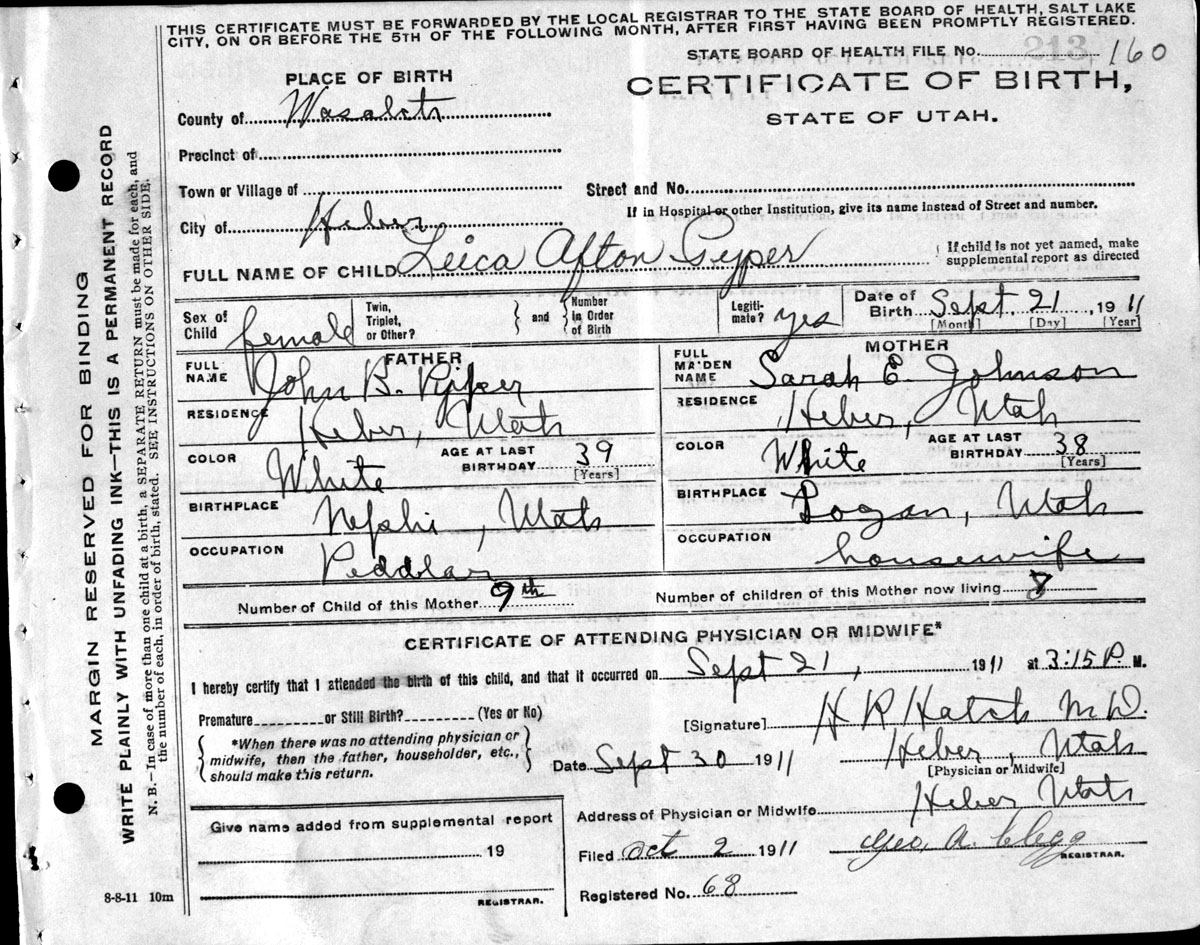 THIS CERTIFICATE MUST BE FORWARDED BY THE LOCAL REGISTRAR TO THE STATE BOARD OF HEALTH, SALT LAKE
CITY, ON OR BEFORE THE 5TH OF THE FOLLOWING MONTH, AFTER FIRST HAVING BEEN PROMPTLY REGISTERED.
STATE BOARD OF HEALTH FILE NO. 213 160
PLACE OF BIRTH
CERTIFICATE OF BIRTH,
STATE OF UTAH.
County of
Precinct of
Town or Village of
Street and No.
If in Hospital or other Institution, give its name instead of Street and number.
City of Heber
FULL NAME OF CHILD Afton
If child is not yet named, make
supplemental report as directed
Sex of Child female
Twin, Triplet, or Other?
and
Number in Order of Birth
Legiti-mate? yes
Date of Birth Sept. 21, 1911
[Month] [Day] [Year]
FATHER
FULL NAME John B.
RESIDENCE Heber, Utah
COLOR White
AGE AT LAST BIRTHDAY 39
[Years]
BIRTHPLACE Nephi, Utah
OCCUPATION Peddlar
MOTHER
FULL MAIDEN NAME Sarah E. Johnson
RESIDENCE Heber, Utah
COLOR White
AGE AT LAST BIRTHDAY 38
[Years]
BIRTHPLACE Logan, Utah
OCCUPATION housewife
Number of Child of this Mother 9th
Number of children of this Mother now living 8
CERTIFICATE OF ATTENDING PHYSICIAN OR MIDWIFE*
I hereby certify that I attended the birth of this child, and that it occurred on Sept 21, 1911 at 3:15 P. M.
Premature or Still Birth? (Yes or No)
[Signature] H R Hatch M.D.
*When there was no attending physician or
midwife, then the father, householder, etc.,
should make this return.
Heber, Utah
[Physician or Midwife]
Date Sept 30 1911
Address of Physician or Midwife Heber Utah
Give name added from supplemental report
19
REGISTRAR.
Filed Oct 2 1911
Geo. A. Clegg
REGISTRAR.
Registered No. 68
8-8-11 10m
MARGIN RESERVED FOR BINDING
WRITE PLAINLY WITH UNFADING INK—THIS IS A PERMANENT RECORD
N. B.—In case of more than one child at a birth, a SEPARATE RETURN must be made for each, and
the number of each, in order of birth, stated. SEE INSTRUCTIONS ON OTHER SIDE.